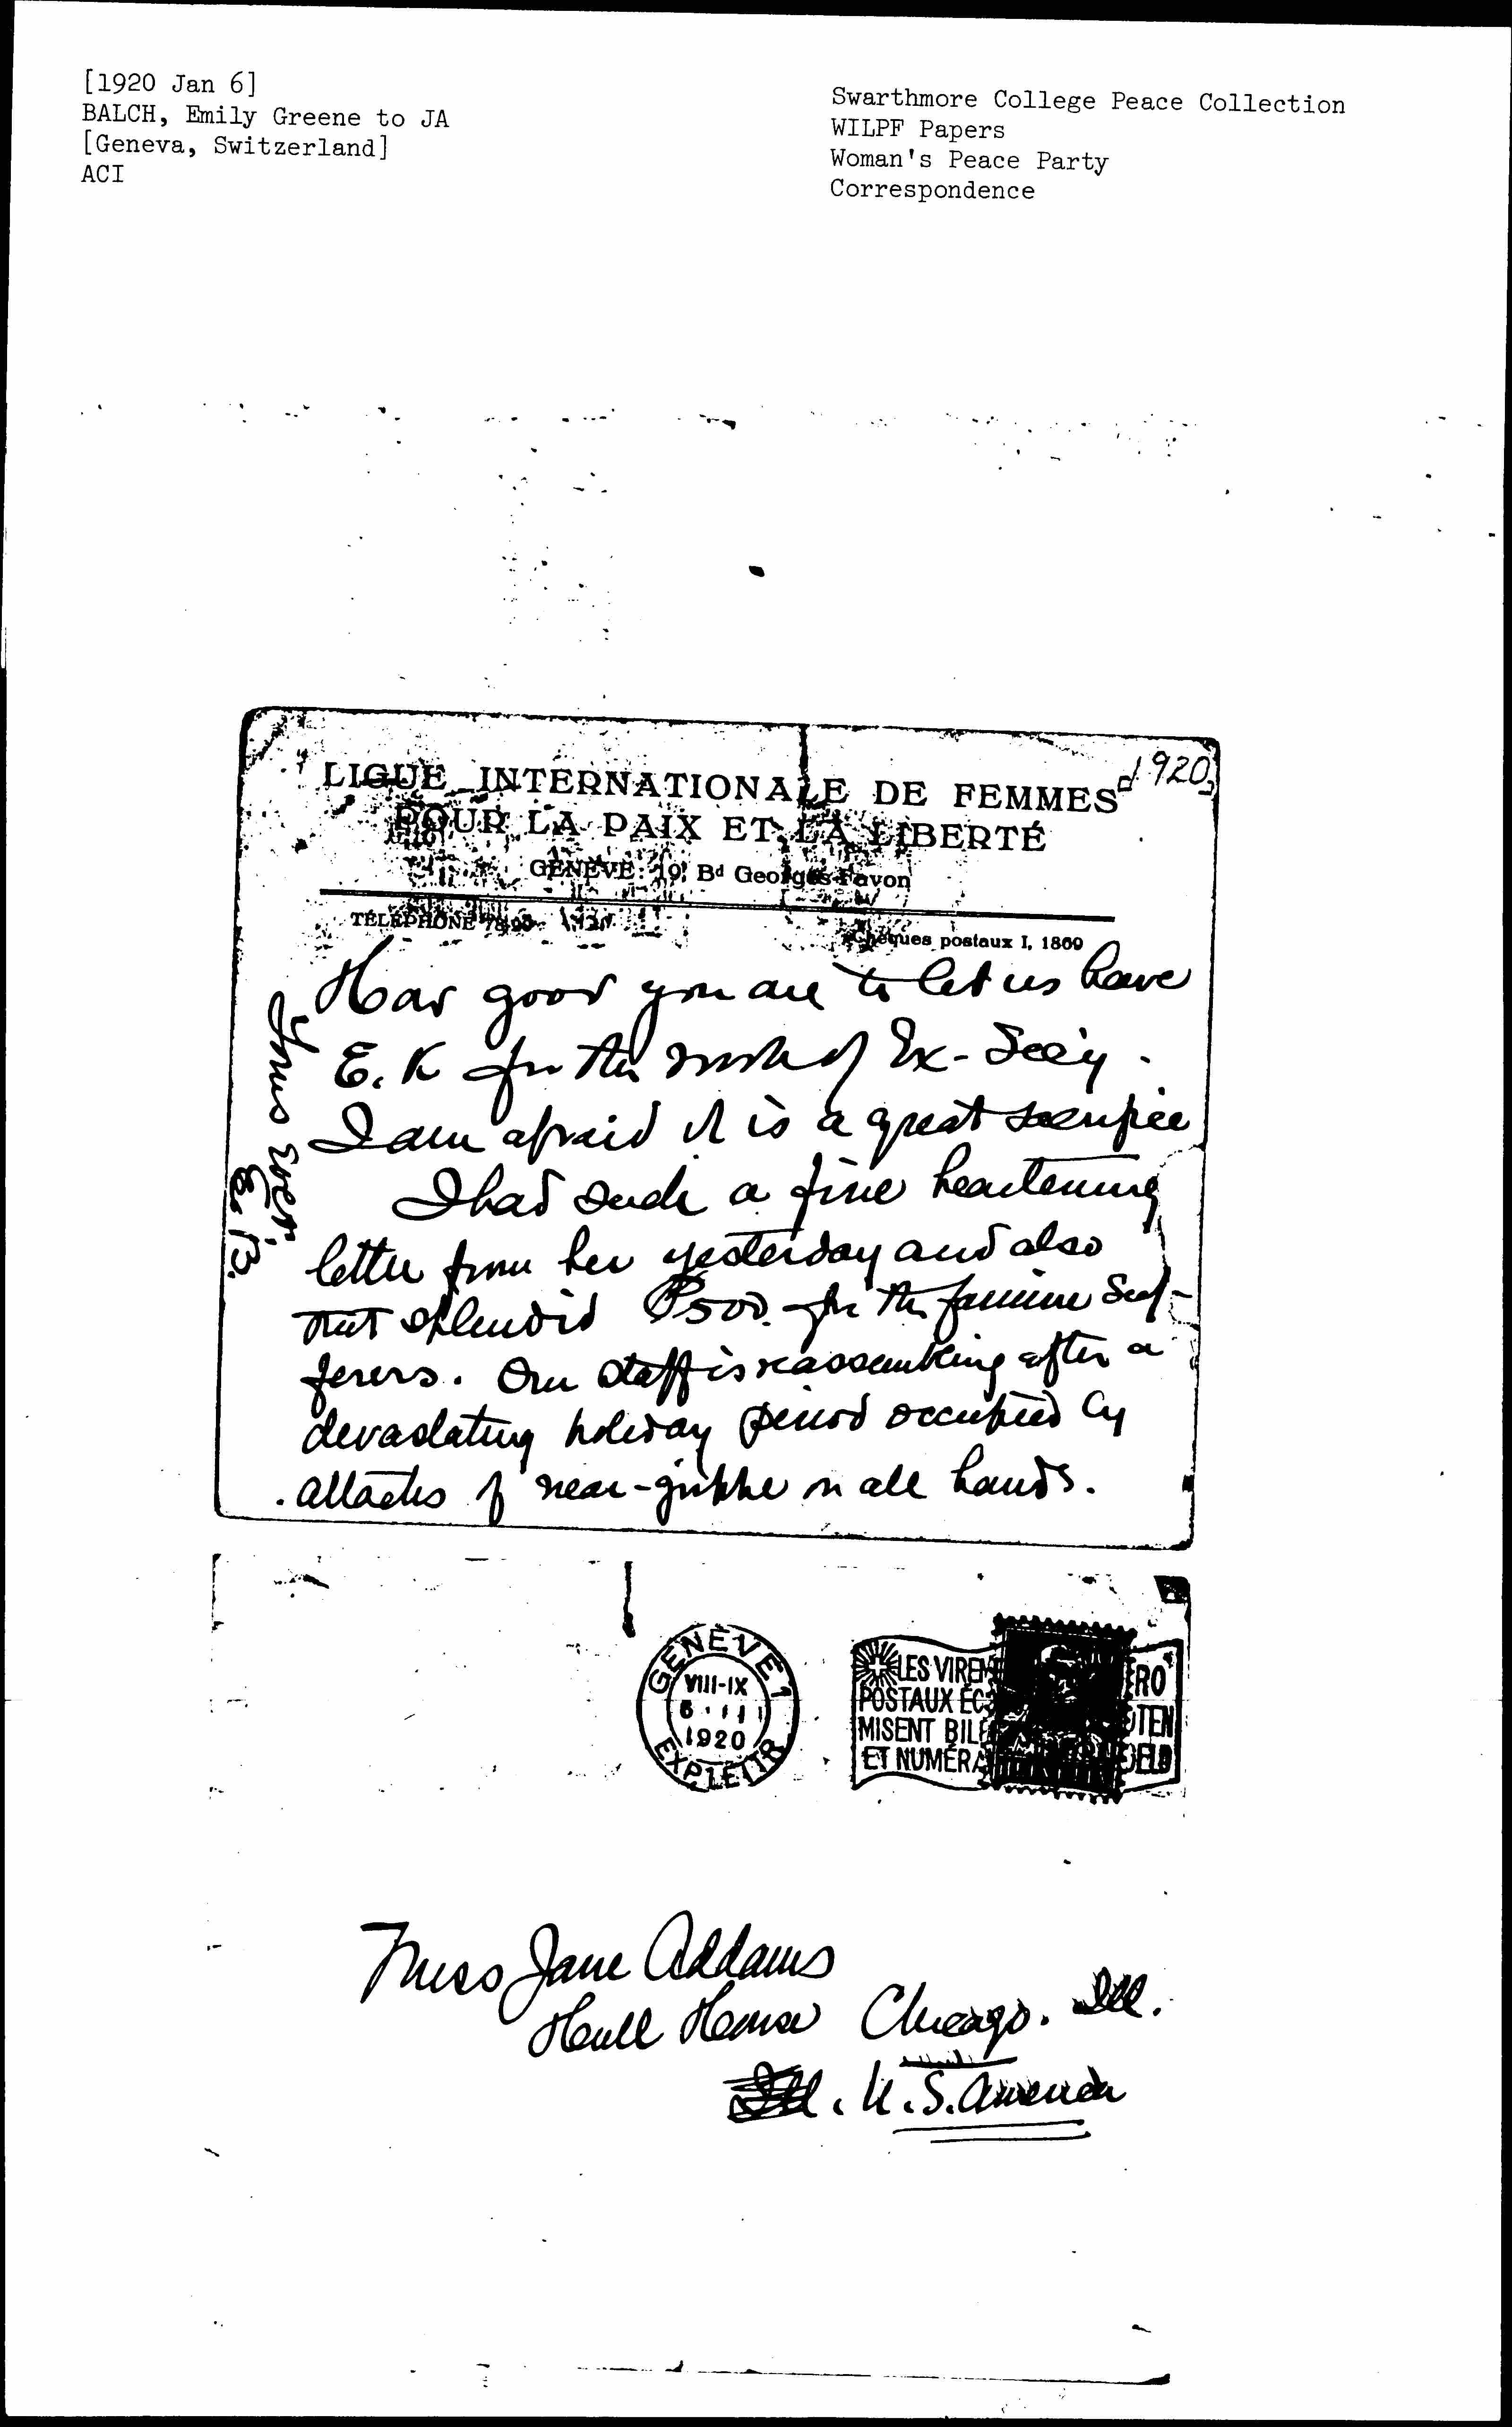 [1920 Jan 6]
BALCH, Emily Greene to JA
[Geneva, Switzerland]
ACI
Swarthmore College Peace Collection
WILPF Papers
Woman's Peace Party
Correspondence
1920
LIGUE INTERNATIONALE DE FEMMES
POUR LA PAIX ET LA LIBERTÉ
GENÈVE: 19, Bd Georges-Favon
TÉLÉPHONE
Chèques postaux I, 1869
How good you are to let us have
E. K for the work of Ex-Sec'y.
I am afraid it is a great sacrifice
I had such a fine heartening
letter from her yesterday and also
that splendid $500. for the famine suf-
ferers. Our staff is reassembling after a
devastating holiday period occupied by
attacks of near-grippe on all hands.
Yours ever,
E. B.
GENÈVE 1
VIII-IX
1920
EXP. LETTR
LES VIREM
POSTAUX ÉCO
MISENT BILL
ET NUMÉRA
ERO
OTEN
GELD
Miss Jane Addams
Hull House Chicago. Ill.
Ill. U.S. America